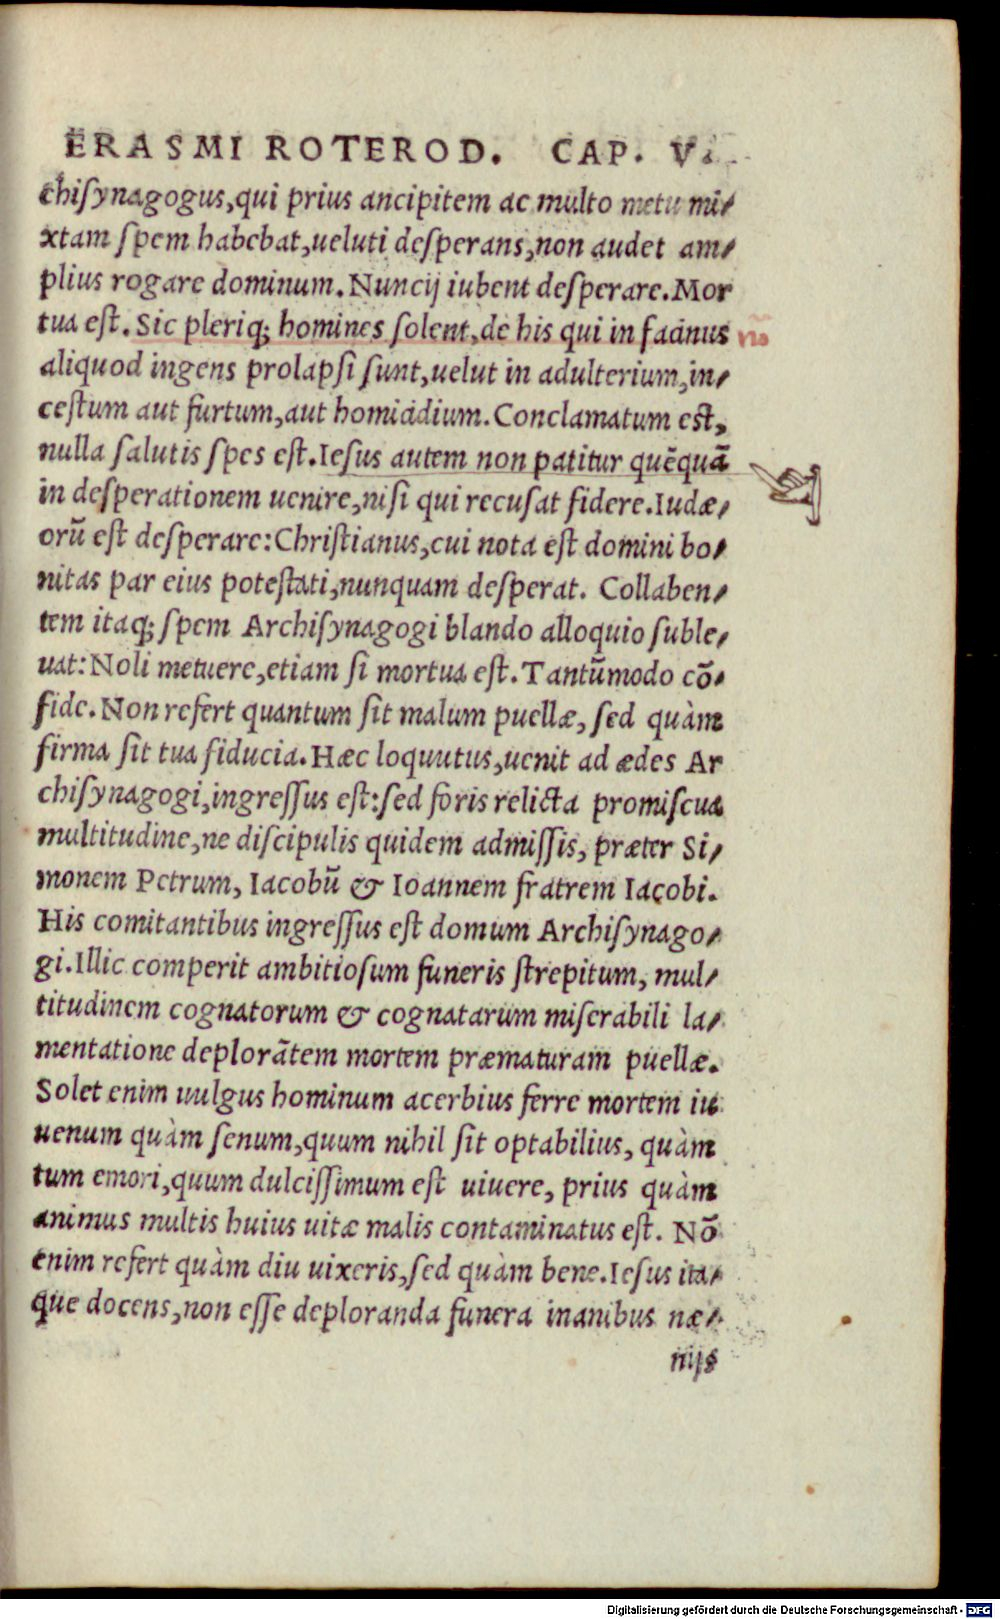 ERASMI ROTEROD. CAP. V.
chiſynagogus,qui prius ancipitem ac multo metu mi⸗
xtam ſpem habebat,ueluti deſperans,non audet am⸗
plius rogare dominum.Nuncij iubent deſperare.Mor
tua eſt.Sic pleriq; homines ſolent,de his qui in facinus
aliquod ingens prolapſi ſunt,uelut in adulterium,in⸗
ceſtum aut furtum,aut homicidium.Conclamatum eſt,
nulla ſalutis ſpes eſt.Ieſus autem non patitur quēquā
in deſperationem uenire,niſi qui recuſat fidere.Iudæ⸗
orū eſt deſperare:Chriſtianus,cui nota eſt domini bo⸗
nitas par eius poteſtati,nunquam deſperat. Collaben⸗
tem itaq; ſpem Archiſynagogi blando alloquio ſuble⸗
uat:Noli metuere,etiam ſi mortua eſt.Tantūmodo cō⸗
fide.Non refert quantum ſit malum puellæ, ſed quàm
firma ſit tua fiducia.Hæc loquutus,uenit ad ædes Ar
chiſynagogi,ingreſſus eſt:ſed foris relicta promiſcua
multitudine,ne diſcipulis quidem admiſſis, præter Si⸗
monem Petrum, Iacobū & Ioannem fratrem Iacobi.
His comitantibus ingreſſus eſt domum Archiſynago⸗
gi.Illic comperit ambitioſum funeris ſtrepitum, mul⸗
titudinem cognatorum & cognatarum miſerabili la⸗
mentatione deplorātem mortem præmaturam puellæ.
Solet enim uulgus hominum acerbius ferre mortem iu
uenum quàm ſenum,quum nihil ſit optabilius, quàm
tum emori,quum dulciſſimum eſt uiuere, prius quàm
animus multis huius uitæ malis contaminatus eſt. Nō
enim refert quàm diu uixeris,ſed quàm bene.Ieſus ita⸗
que docens,non eſſe deploranda funera inanibus næ⸗
nijs
Digitalisierung gefördert durch die Deutsche Forschungsgemeinschaft - DFG